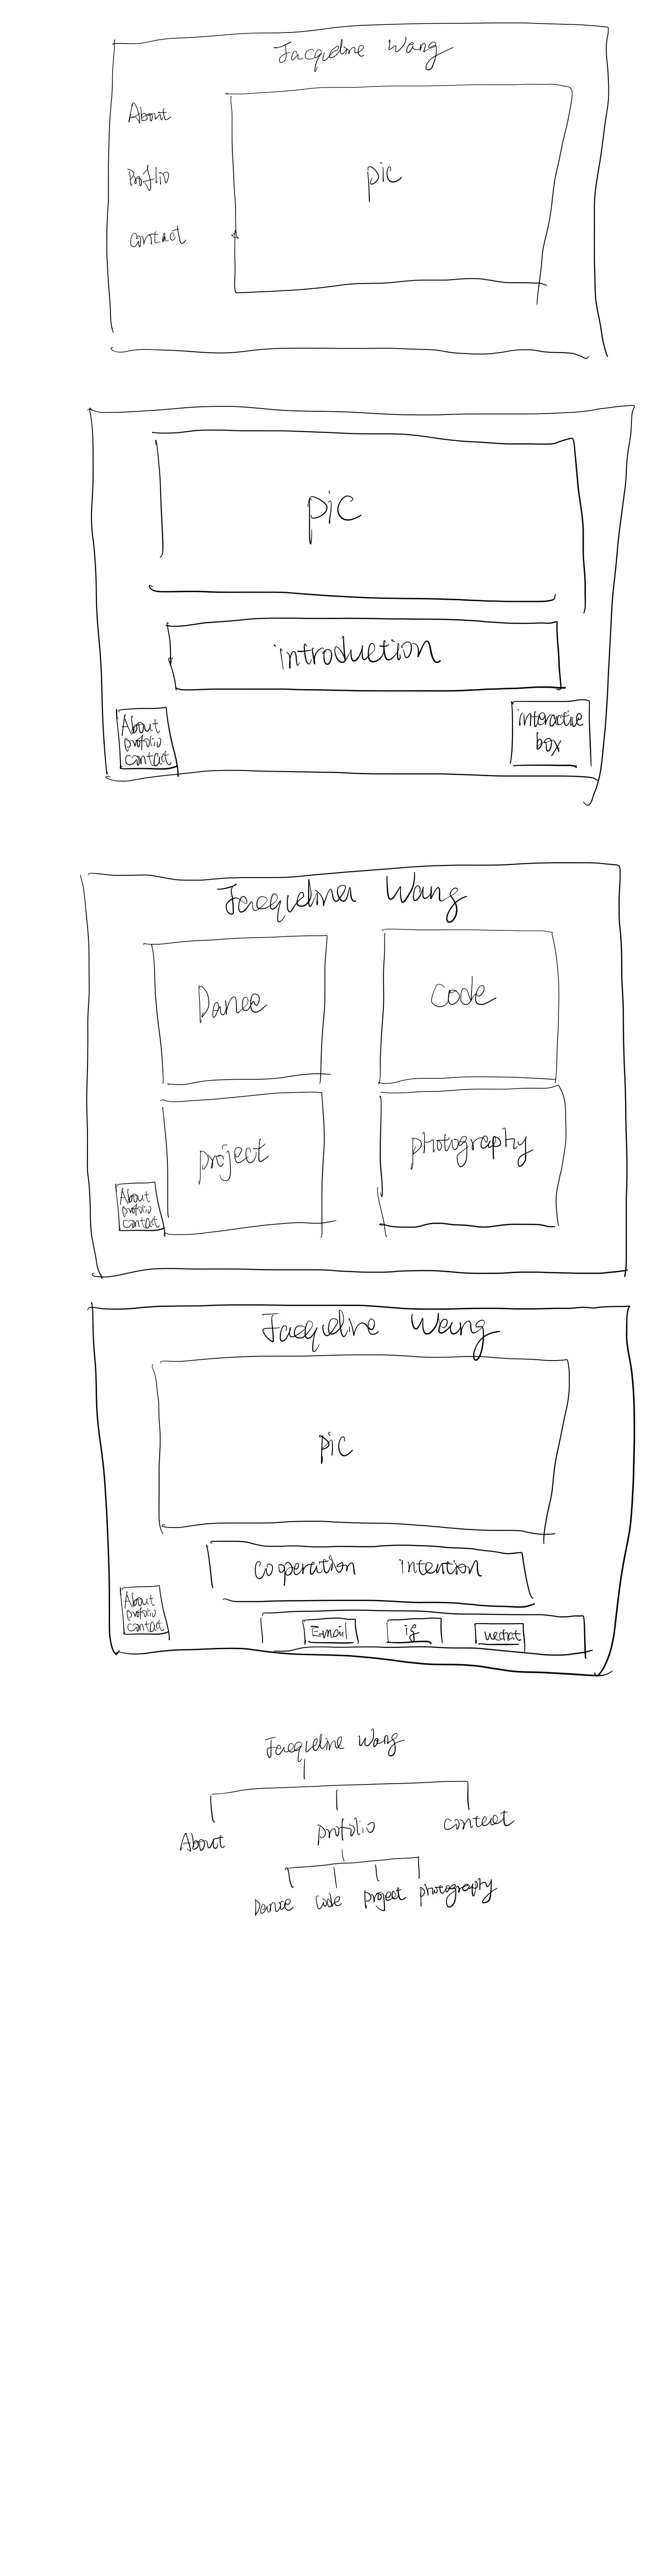 Jacqueline Wang
About
pic
Proflio
contact
pic
introduction
About
profolio
contact
interactive
box
Jacqueline Wang
Dance
code
project
photography
About
profolio
contact
Jacqueline Wang
pic
cooperation intention
About
profolio
contact
Email
ig
wechat
Jacqueline Wang
About
profolio
contact
Dance
code
project
photography